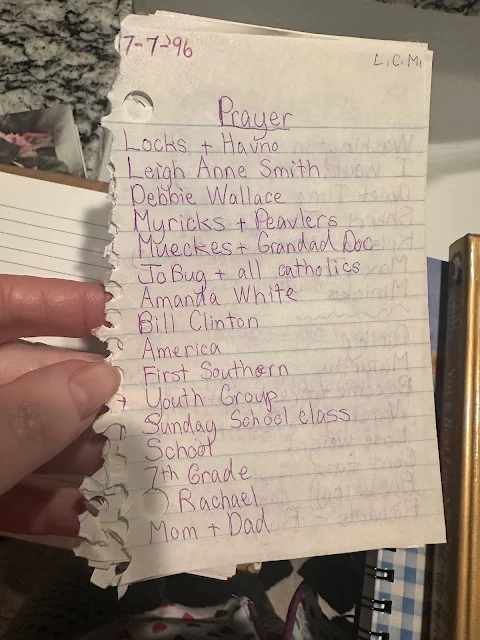 7-7-96
L.C.M.
Prayer
Locks + Havno
Leigh Anne Smith
Debbie Wallace
Myricks + Peavlers
Mueckes + Grandad Doc
JoBug + all catholics
Amanda White
Bill Clinton
America
First Southern
Youth Group
Sunday School class
School
7th Grade
Rachael
Mom + Dad